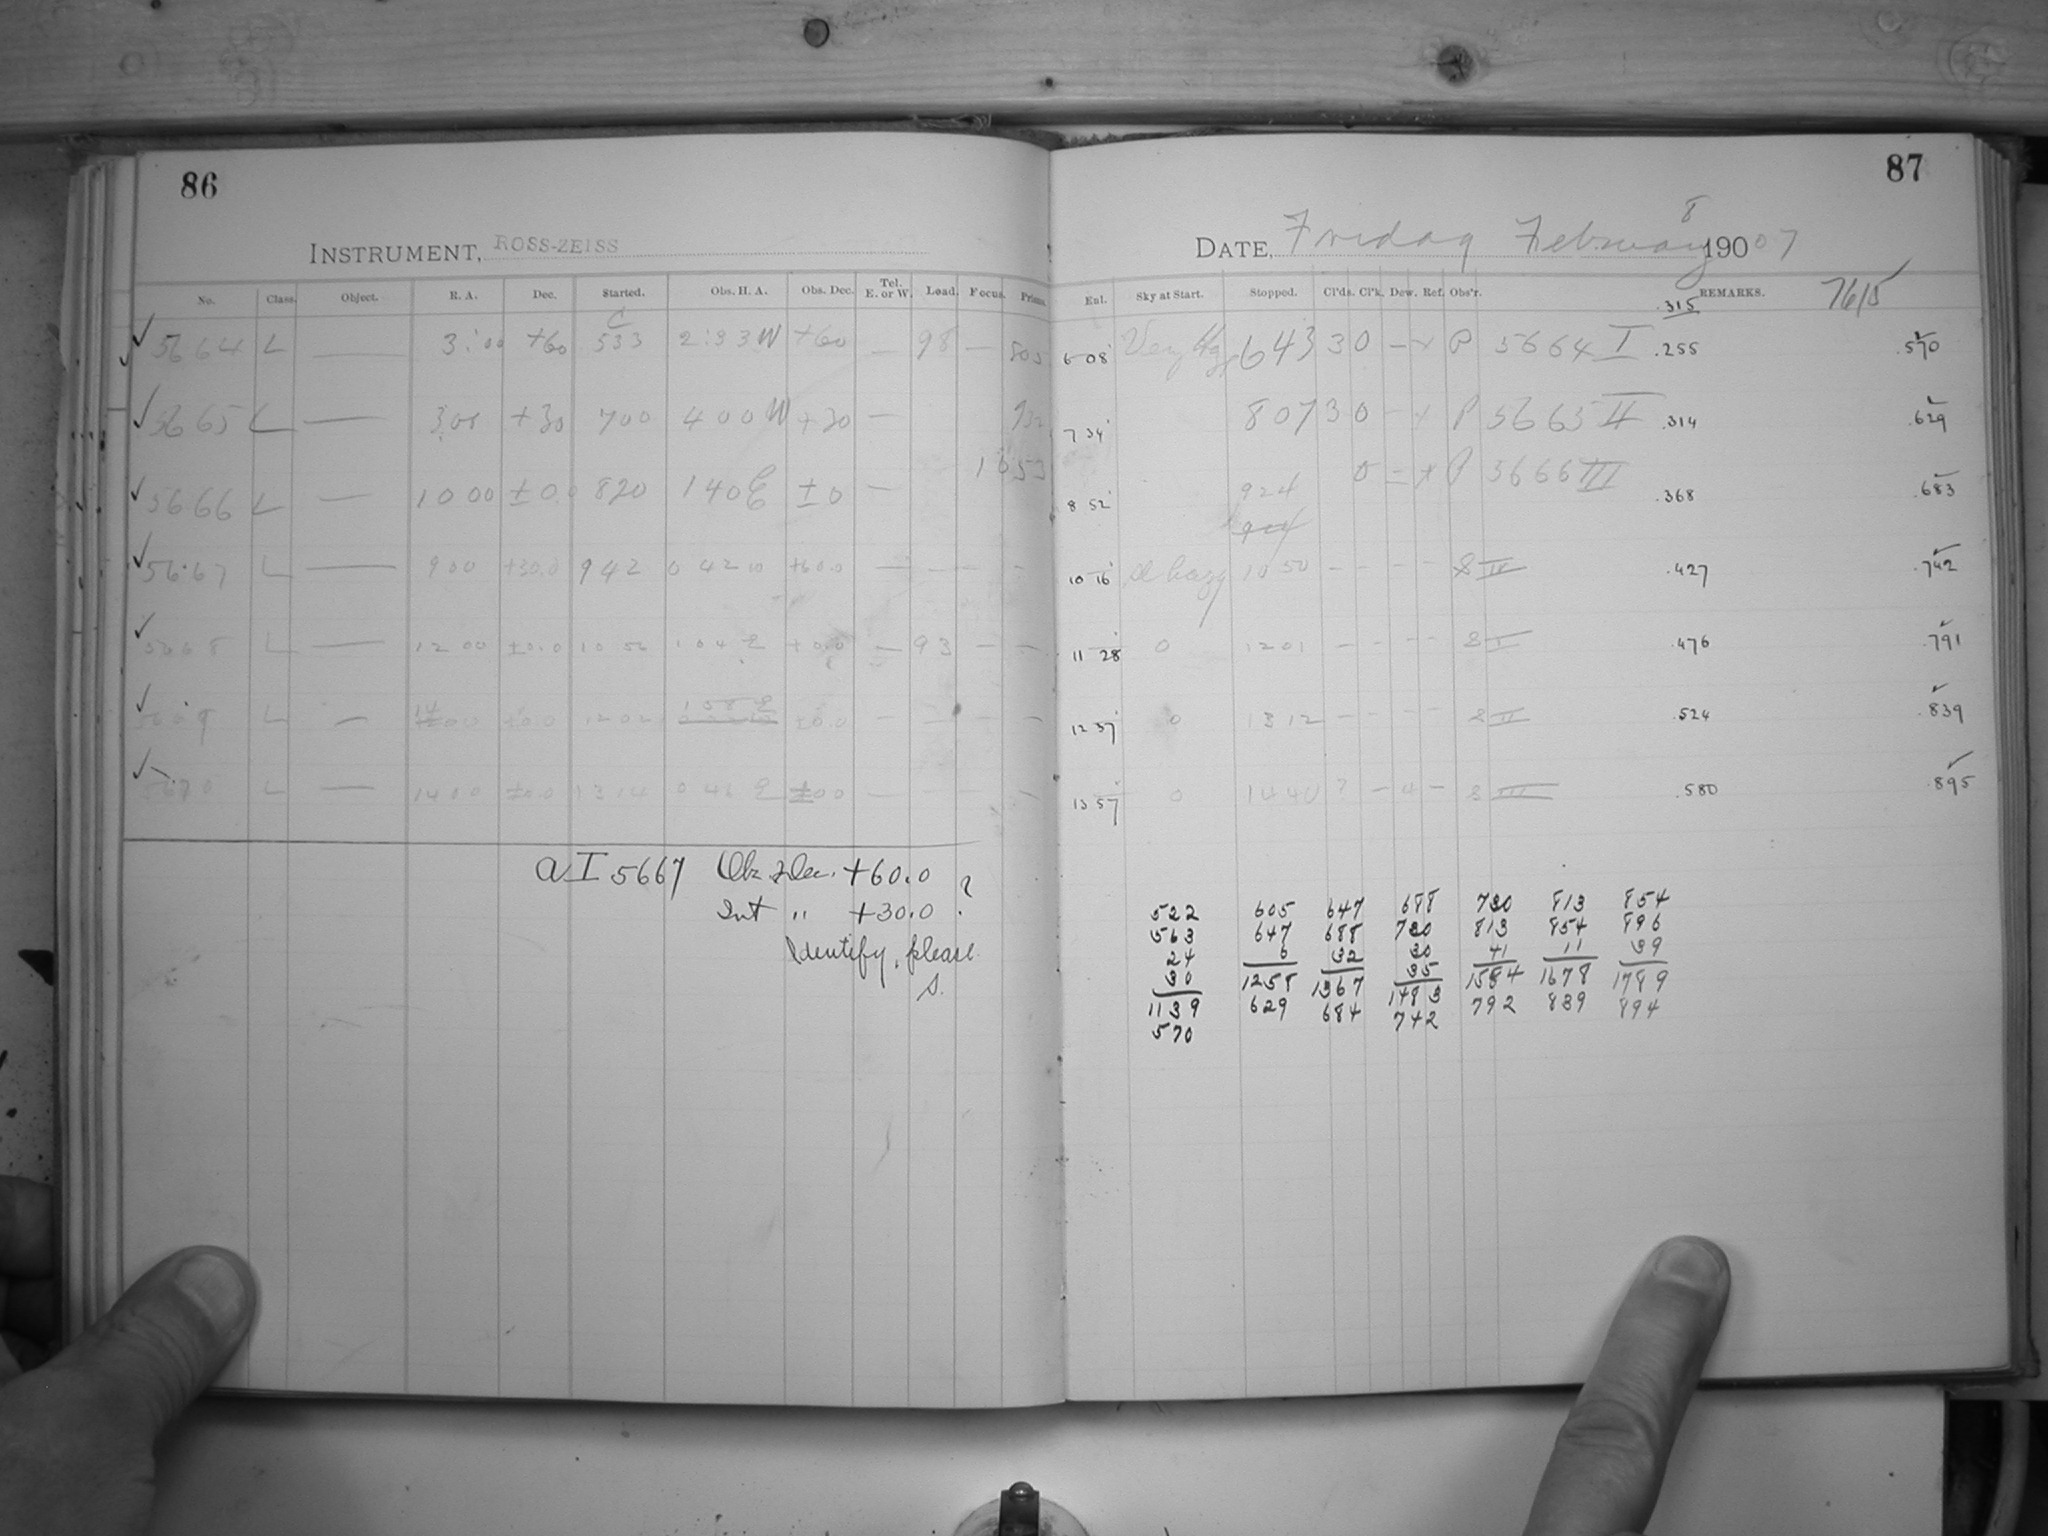 86
INSTRUMENT, ROSS-ZEISS
No. Class. Object. R. A. Dec. Started. Obs. H. A. Obs. Dec. Tel. E. or W. Load. Focus. Prisms.
C
5664 L — 3:00 +60 533 2:33 W +60 — 98 — 803
5665 L — 3 00 +30 700 400 W +30 — 932
5666 L — 1000 ±0.0 820 140 E ±0 — 1053
5667 L — 900 +30.0 942 0 42 W +60.0 — — — —
5668 L — 1200 ±0.0 1056 104 E ±0.0 — 93 — —
5669 L — 14 00 ±0.0 1202 158 E ±0.0 — — — —
5670 L — 1400 ±0.0 1314 0 46 E ±00 — — — —
a I 5667 Obs. Dec. +60.0 ?
Int " +30.0
Identify, please
S.
87
8
DATE, Friday February 190 07
Enl. Sky at Start. Stopped. Cl'ds. Cl'k. Dew. Ref. Obs'r. REMARKS. 7615
.315
6 08 Very Hzy 643 3 0 — x P 5664 I .255 .570
7 34 807 3 0 — x P 5665 II .314 .629
8 52 924 0 — x P 5666 III .368 .683
924
10 16 sl hazy 1050 — — — — S IV .427 .742
11 28 0 1201 — — — — S I .476 .791
12 37 0 1312 — — — — S II .524 .839
13 57 0 1440 ? — — S III .580 .895
522 605 647 688 730 813 854
563 647 688 730 813 854 896
24 6 32 30 41 11 39
30 1258 1367 35 1584 1678 1789
1139 629 684 1483 792 839 894
570 742